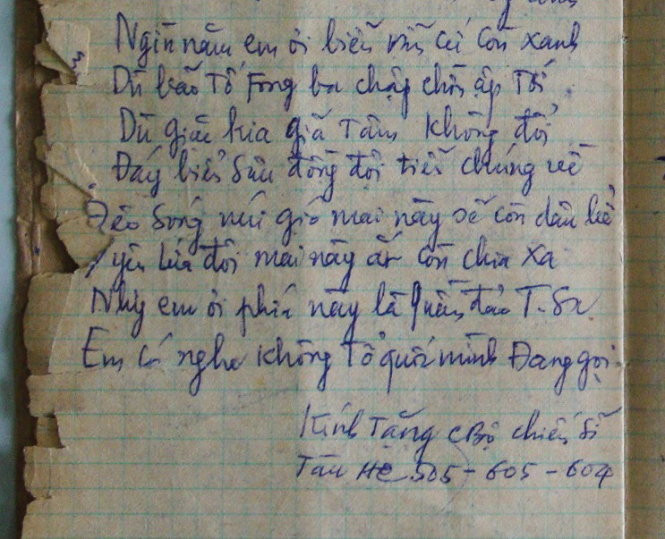 Ngìn năm em ơi biển vẫn cứ còn xanh
Dù bão tố Fong ba chập chờn ập tới
Dù giặc kia giã tâm không đổi
Đáy biển sâu đồng đội tiễn chúng về
Đèo sóng núi gió mai này sẽ còn dâu bể
yêu lứa đôi mai này ắt còn chia xa
Nhưng em ơi phía này là quần đảo T.Sa
Em có nghe không tổ quốc mình Đang gọi
Kính Tặng CBộ chiến sĩ
Tàu HQ 505 - 605 - 604